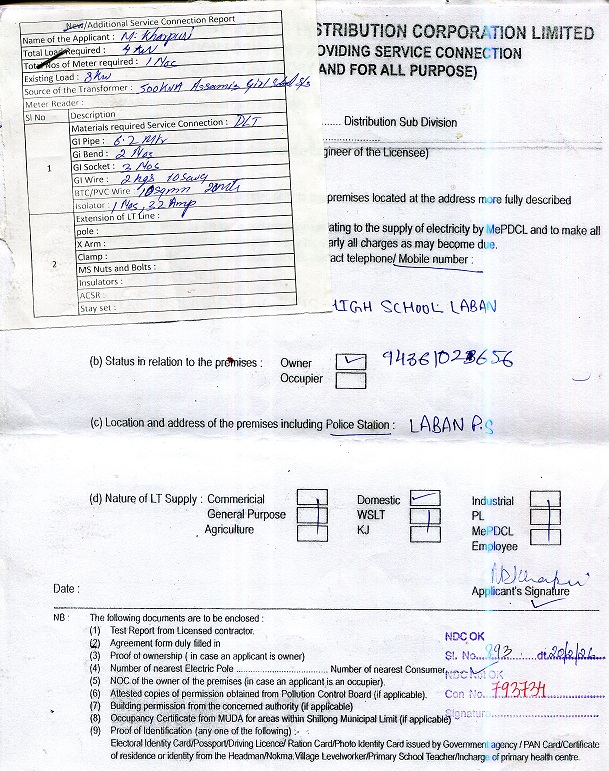 New/Additional Service Connection Report
Name of the Applicant : M. Kharpuri
Total Load Required : 4 KW
Total Nos of Meter required : 1 No
Existing Load : 8 KW
Source of the Transformer : 500KVA Assamis Girl School S/s
Meter Reader :
Sl No Description
1
Materials required Service Connection : DLT
GI Pipe : 6.2 Mtr
Gi Bend : 2 Nos
GI Socket : 2 Nos
GI Wire : 2 kgs 10 swg
BTC/PVC Wire 10sqmm
isolator : 1 Nos, 32 Amp
2
Extension of LT Line :
pole :
X Arm :
Clamp :
MS Nuts and Bolts :
Insulators :
ACSR :
Stay set :
STRIBUTION CORPORATION LIMITED
OVIDING SERVICE CONNECTION
AND FOR ALL PURPOSE)
............ Distribution Sub Division
gineer of the Licensee)
premises located at the address more fully described
ating to the supply of electricity by MePDCL and to make all
arly all charges as may become due.
act telephone/ Mobile number :
HIGH SCHOOL LABAN
(b) Status in relation to the premises : Owner
Occupier
(c) Location and address of the premises including Police Station : LABAN P.S
(d) Nature of LT Supply : Commericial Domestic Industrial
General Purpose WSLT PL
Agriculture KJ MePDCL
Employee
Date :
Applicant's Signature
NB : The following documents are to be enclosed :
(1) Test Report from Licensed contractor.
(2) Agreement form duly filled in
(3) Proof of ownership ( in case an applicant is owner)
(4) Number of nearest Electric Pole ............................ Number of nearest Consumer
(5) NOC of the owner of the premises (in case an applicant is an occupier).
(6) Attested copies of permission obtained from Pollution Control Board (if applicable).
(7) Building permission from the concerned authority (if applicable)
(8) Occupancy Certificate from MUDA for areas within Shillong Municipal Limit (if applicable)
(9) Proof of Identification (any one of the following) :-
Electoral Identity Card/Possport/Driving Licence/ Ration Card/Photo Identity Card issued by Government agency / PAN Card/Certificate
of residence or identity from the Headman/Nokma.Village Levelworker/Primary School Teacher/Incharge of primary health centre.
NDC OK
Sl. No. 893 dt. 20/2/26
NDC Not OK
Con No. 793734
Signature